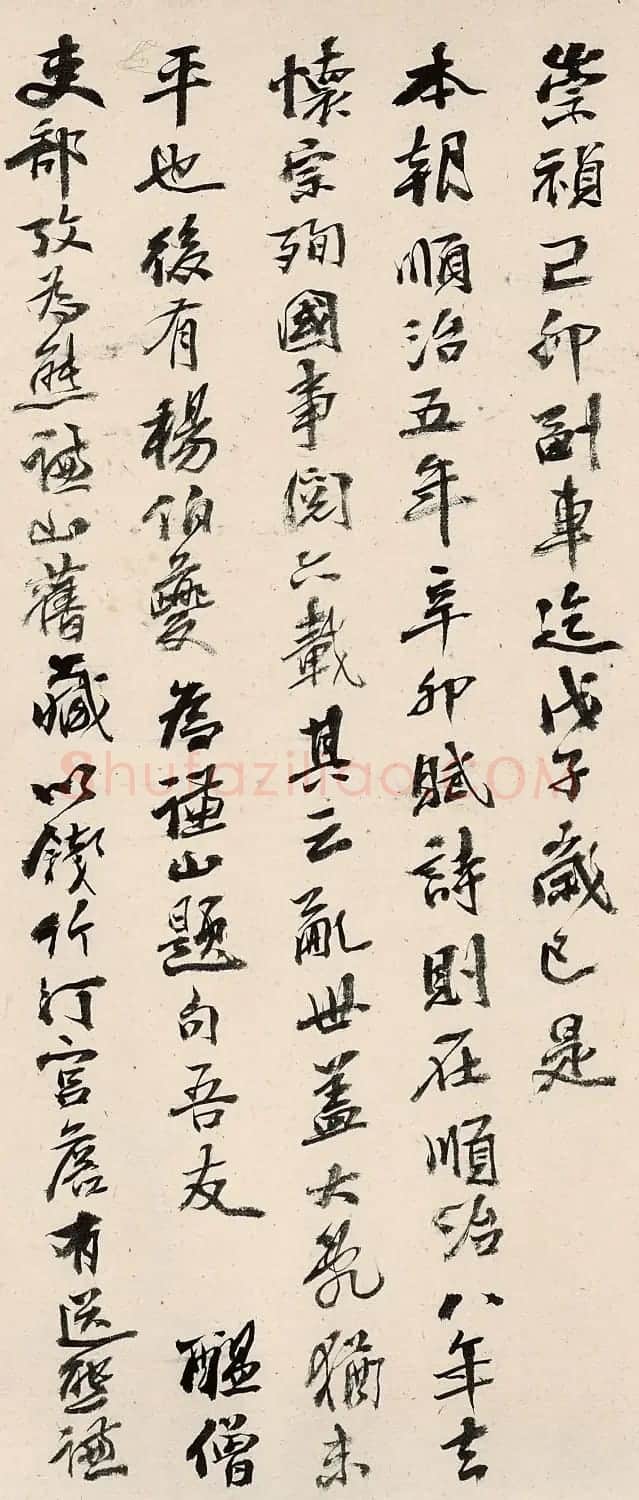 崇禎己卯副車迄戊子歲已是
本朝順治五年辛卯賦詩則在順治八年去
懷宗殉國事閲六載其云亂世蓋大亂猶未
平也後有楊伯夔為謙山題句吾友 醖僧
吏部攷為熊謙山舊藏以錢竹汀宮詹有送熊謙
Shufaziliao.COM